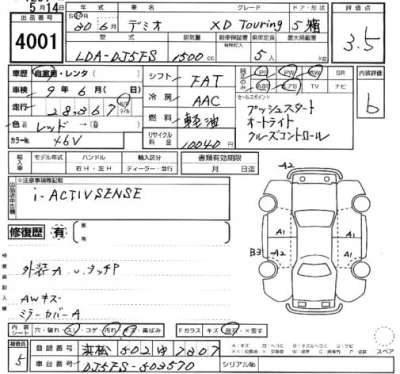 5月14日
出品番号 4001
年式 車名 グレード ドア・形状
30.6月 デミオ XD Touring 5箱
型式 排気量 乗車定員 最大積載量
LDA-DJ5FS 1500cc 5人
3.5
車歴 自家用・レンタ シフト FAT
PS PW SR
AB TV ナビ
内装評価
車検 9年6月(日) 冷房 AAC
セールスポイント
b
走行 28,367 燃料 軽油
プッシュスタート
オートライト
クルーズコントロール
色 レッド
カラーNo. 46V リサイクル料金 10040円
輸入車 モデル年式 ハンドル 輸入区分 書類有効期限
年 右H・左H ディーラー・並行 月 日迄
※注意事項等記載
i-ACTIVSENSE
修復歴 有
A2
A1 A1
B3 A2
外装A.U.タッチP
AWキズ
ミラーカバーA
内装シート 穴・破れ・スレ・コゲ 汚れ 黄ばみ Fガラス キズ
スペア
5 登録番号 浜松502ゆ7307
車台番号 DJ5FS-503570 シリアルNo.